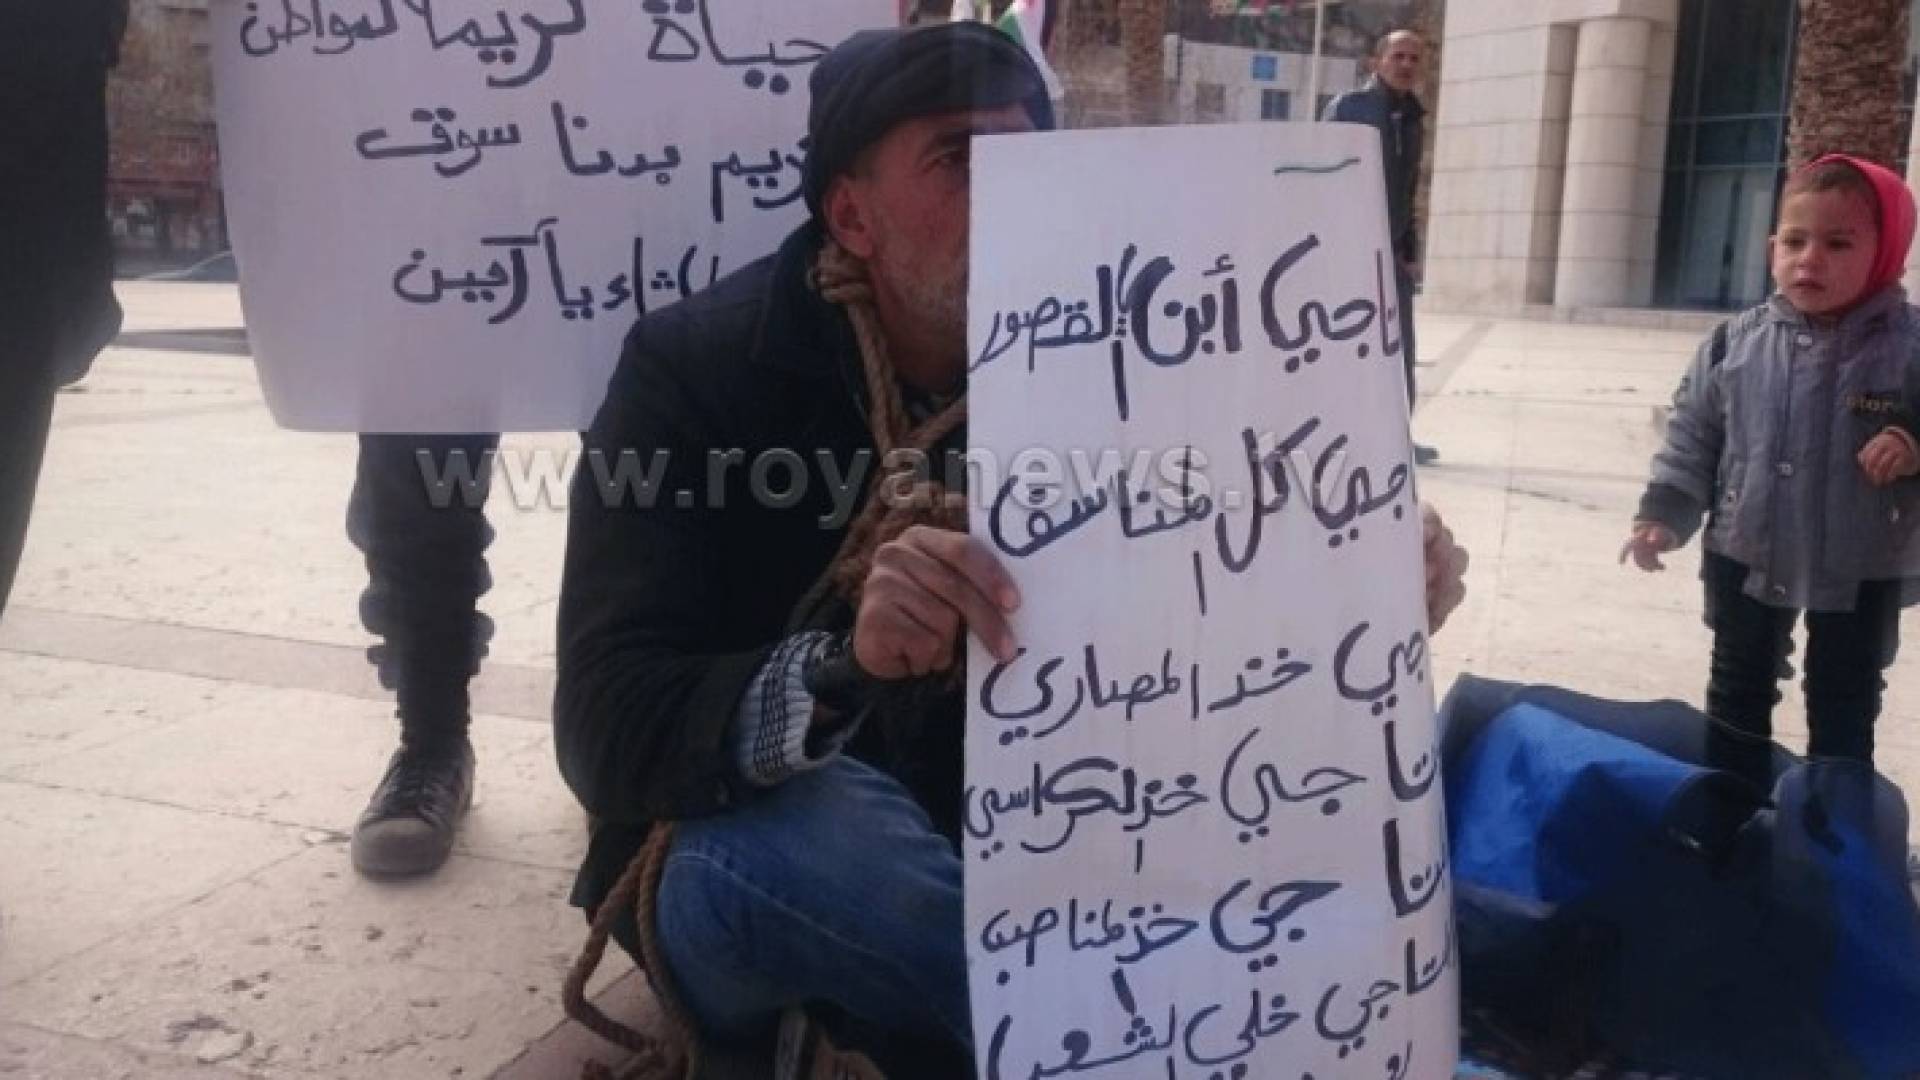 حياة كريما لمواطن
كريم بدنا سوق
الثلثاء يا آكجين
تاجي أبن القصور
تاجي كل المناسف
تاجي خذ المصاري
تاجي خذ الكراسي
تاجي خذ المناصب
تاجي خلي الشعب
www.royanews.tv